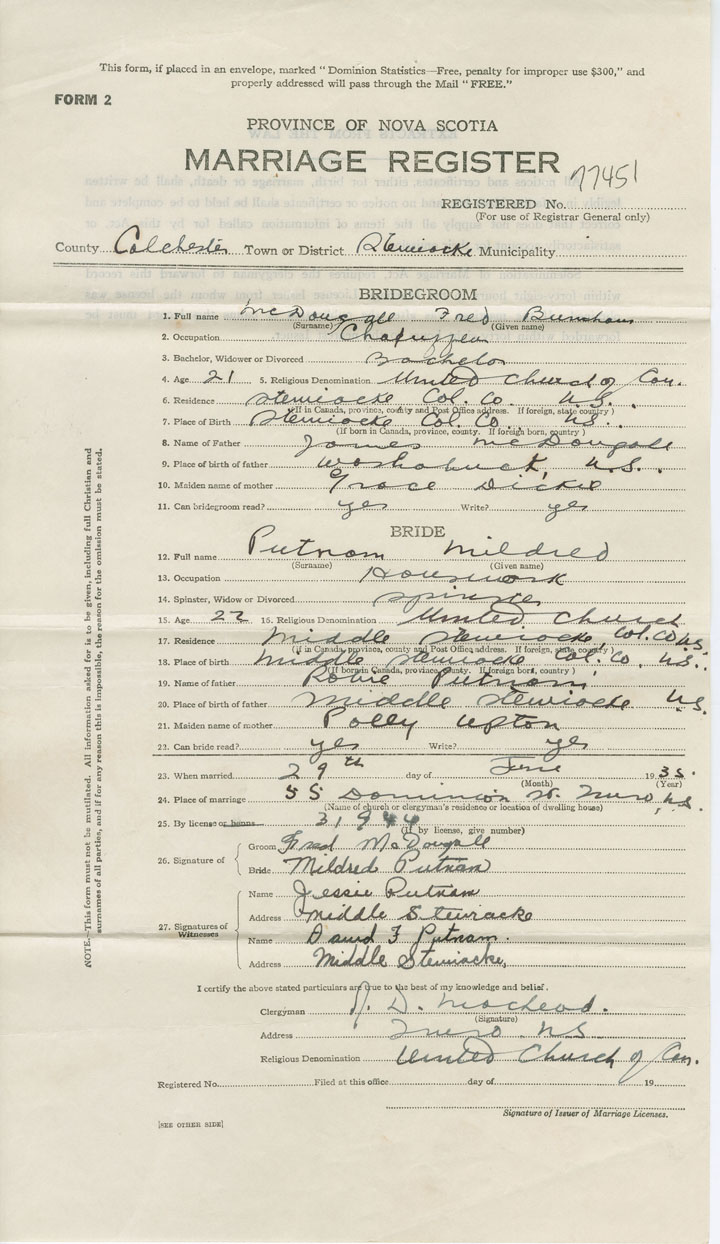 This form, if placed in an envelope, marked "Dominion Statistics—Free, penalty for improper use $300," and
properly addressed will pass through the Mail "FREE."
FORM 2
PROVINCE OF NOVA SCOTIA
MARRIAGE REGISTER
77451
REGISTERED No.
(For use of Registrar General only)
County Colchester Town or District Stewiacke Municipality
BRIDEGROOM
1. Full name McDougall Fred
(Surname) (Given name)
2. Occupation
3. Bachelor, Widower or Divorced Bachelor
4. Age 21 5. Religious Denomination United Church of Can.
6. Residence Stewiacke Col. Co. N.S.
(If in Canada, province, county and Post Office address. If foreign, state country)
7. Place of Birth Stewiacke Col. Co. N.S.
(If born in Canada, province, county. If foreign born, country)
8. Name of Father James McDougall
9. Place of birth of father N.S.
10. Maiden name of mother Grace Dickie
11. Can bridegroom read? yes Write? yes
BRIDE
12. Full name Putnam Mildred
(Surname) (Given name)
13. Occupation Housework
14. Spinster, Widow or Divorced Spinster
15. Age 22 15. Religious Denomination United Church
17. Residence Middle Stewiacke, Col. Co N.S.
(If in Canada, province, county and Post Office address. If foreign, state country)
18. Place of birth Middle Stewiacke Col. Co. N.S.
(If born in Canada, province, county. If foreign born, country)
19. Name of father Robie Putnam
20. Place of birth of father Middle Stewiacke N.S.
21. Maiden name of mother Polly Upton
22. Can bride read? yes Write? yes
23. When married 29th day of June 1935.
(Month) (Year)
24. Place of marriage 55 Dominion St. Truro, N.S.
(Name of church or clergyman's residence or location of dwelling house)
25. By license or banns 31944
(If by license, give number)
26. Signature of
Groom Fred McDougall
Bride Mildred Putnam
27. Signatures of Witnesses
Name Jessie Putnam
Address Middle Stewiacke
Name David F Putnam.
Address Middle Stewiacke,
I certify the above stated particulars are true to the best of my knowledge and belief.
Clergyman D. MacLeod.
(Signature)
Address Truro NS
Religious Denomination United Church of Can.
Registered No. Filed at this office day of 19
Signature of Issuer of Marriage Licenses.
[SEE OTHER SIDE]
NOTE.—This form must not be mutilated. All information asked for is to be given, including full Christian and
surnames of all parties, and if for any reason this is impossible, the reason for the omission must be stated.